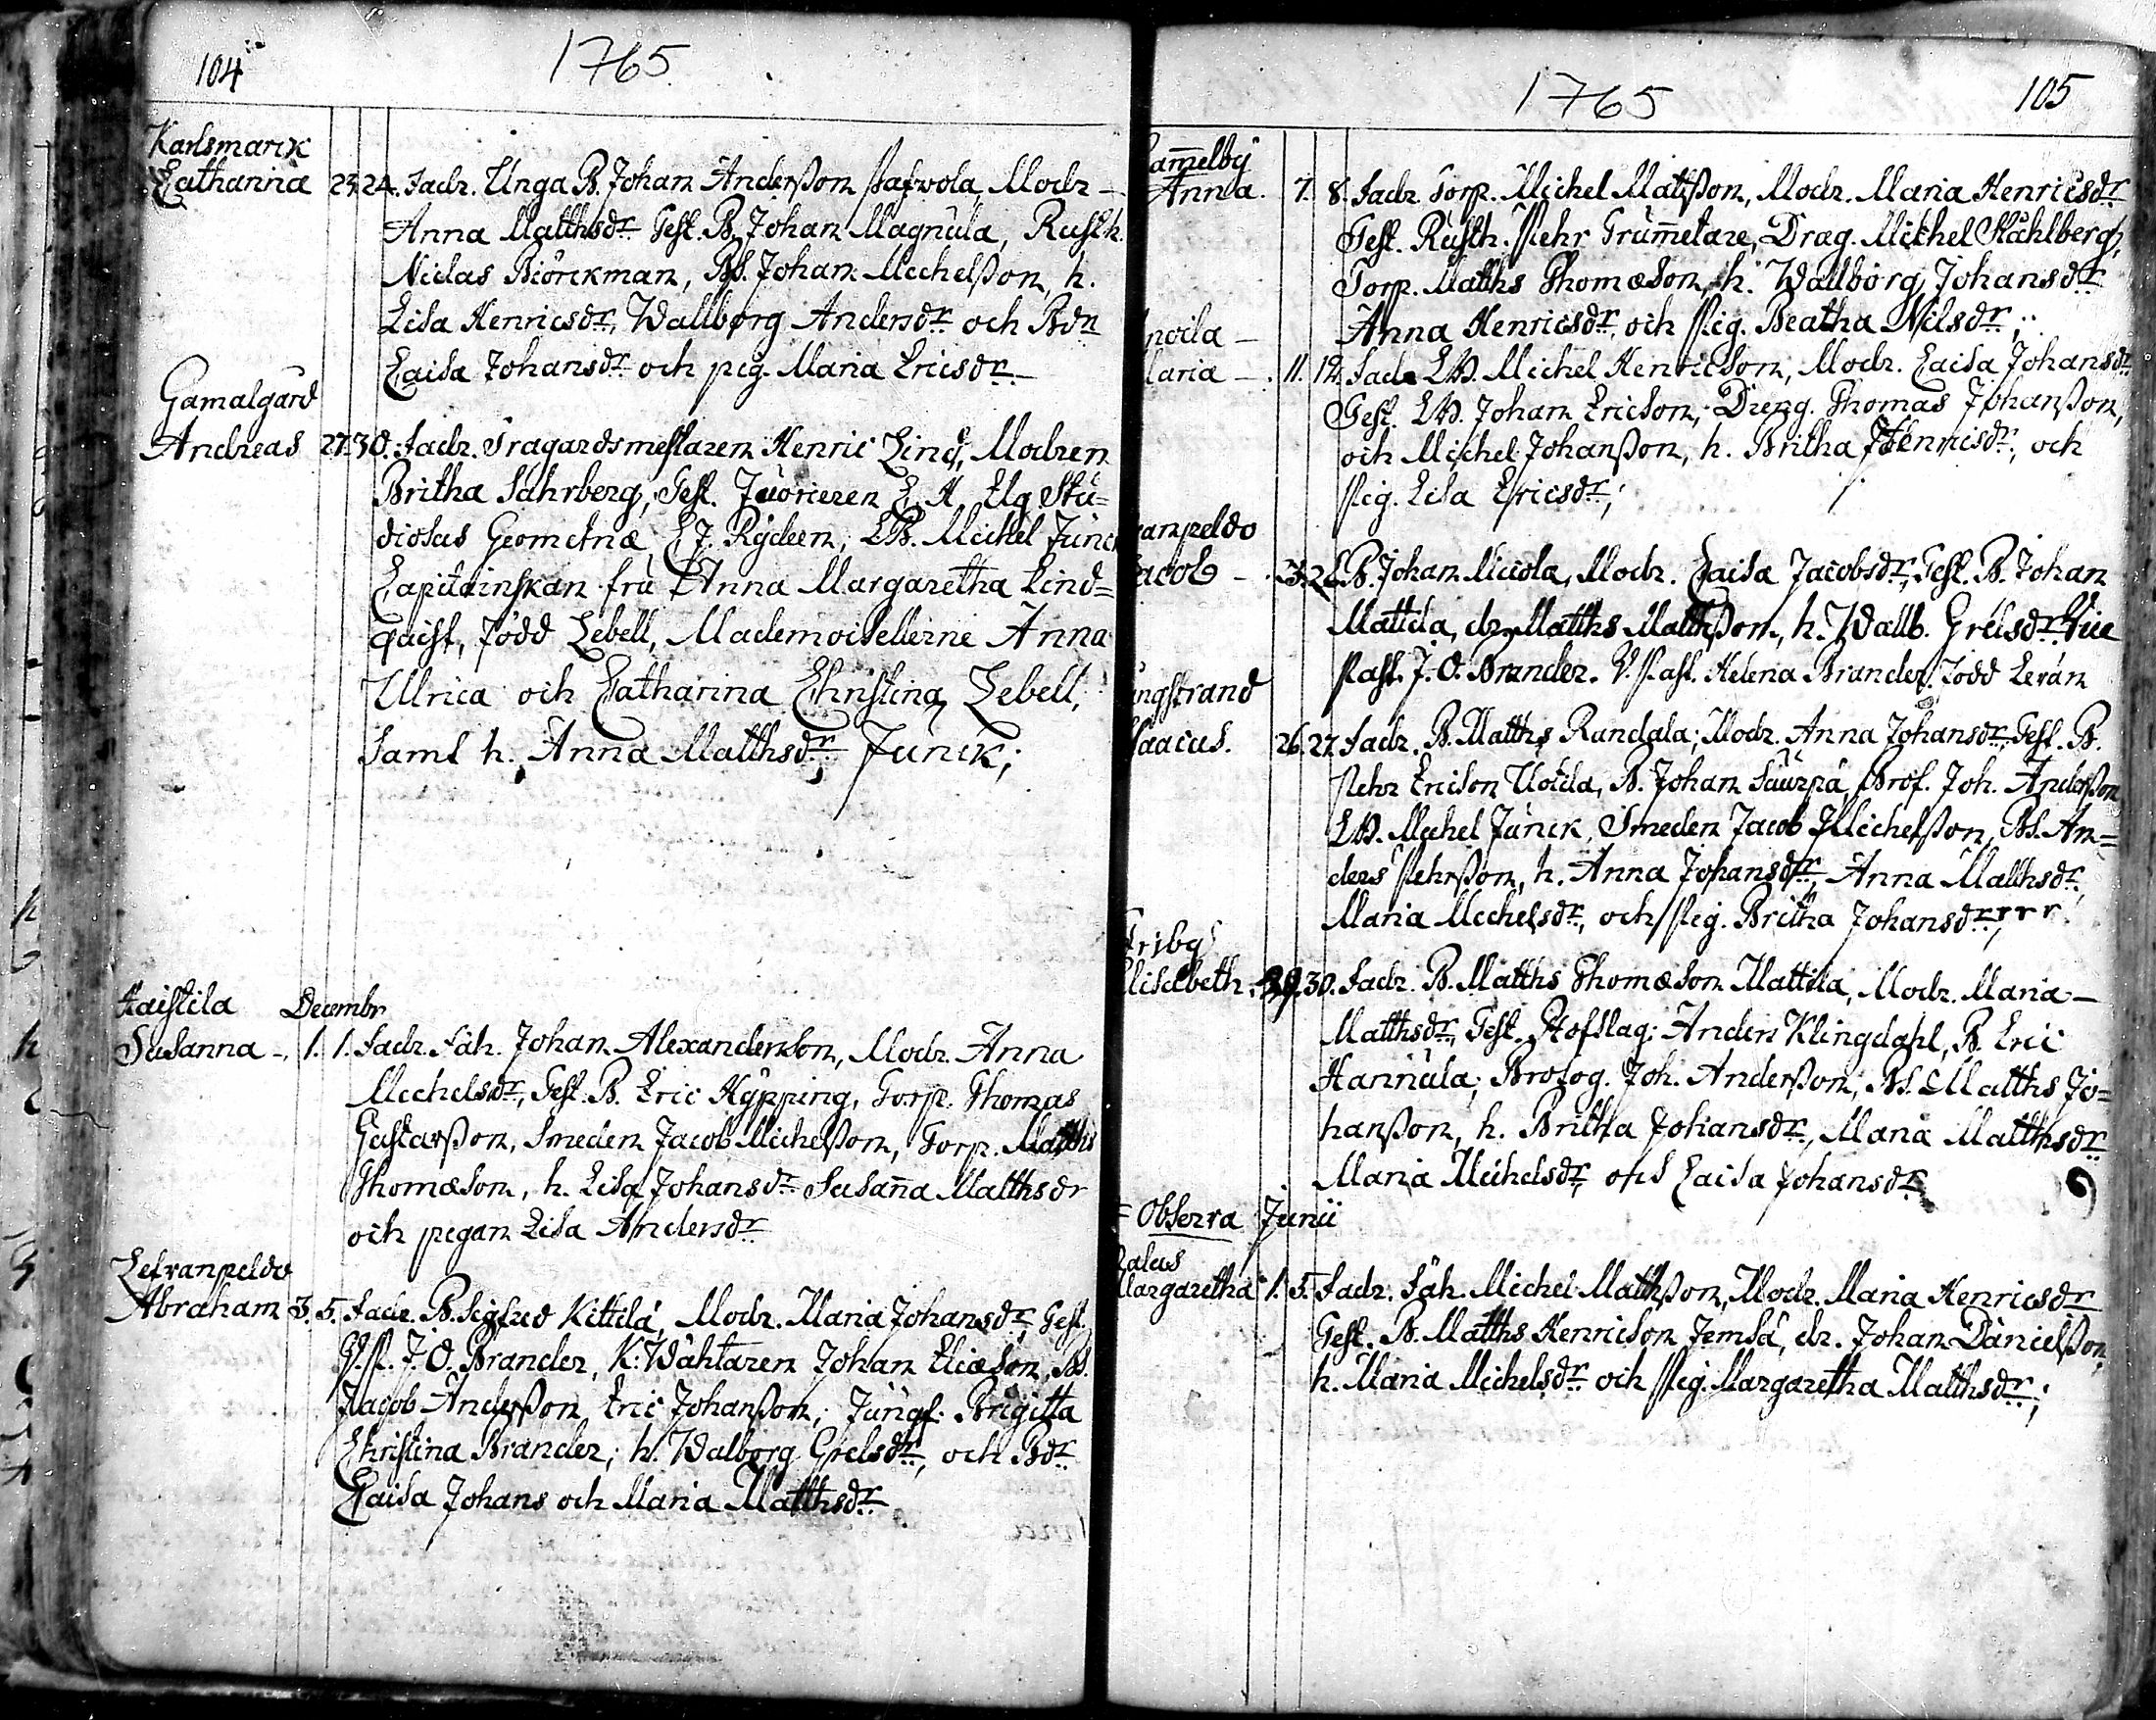 104
1765
Karlsmarck
Catharina 23. 24. Fadr. Unga B. Johan Anderßon Pafwola, Modr
Anna Matthsdr. Test. B. Johan Magnula, Rusth.
Niclas Biörckman, Bs. Johan Michelßon, h.
Lisa Henricsdr, Wallborg Andersdr och Bdr
Caisa Johansdr och pig. Maria Ericsdr
Gamalgård
Andreas 27. 30. Fadr. Trägårdsmestaren Henric Lind, Modren
Britha Sahrberg, Test. Juorieren C. H. Elg Stu=
diosus Geometriæ C J. Rydeen, LB. Michel Junck
Capitainskan fru Anna Margaretha Lind=
quist, född Lebell, Mademoisellerne Anna
Ulrica och Catharina Christina Lebell,
samt h. Anna Matthsdr Junck;
Haistila Decembr
Susanna 1. 1. Fadr. Inh. Johan Alexanderson, Modr. Anna
Michelsdr, Test. B. Eric Hypping, Torp. Thomas
Gustafßon, Smeden Jacob Michelßon, Torp. Matths
Thomæson, h. Lisa Johansdr Susanna Matthsdr
och pigan Lisa Andersdr
Lefvanpeldo
Abraham 3. 5. Fadr. B. Sigfred Kittilä, Modr. Maria Johansdr, Test.
V. P. J. O. Brander, K. Wächtaren Johan Eliæson, Bs.
Jacob Anderßon Eric Johanßon; Jungf. Brigitta
Christina Brander; h. Walborg Grelsdr, och Bdr
Caisa Johans och Maria Matthsdr
1765
105
ammelby
Anna. 7. 8. Fadr Torp. Michel Matsßon, Modr. Maria Henricsdr
Test. Rusth. Pehr Trumetare, Drag. Michel Ståhlberg,
Torp. Matths Thomæson, h. Wallborg Johansdr
Anna Henricsdr och Pig. Beatha Nilsdr;
noila
laria 11. 12. Fadr LB. Michel Henricson, Modr. Caisa Johansdr
Test. LB. Johan Ericson, Dreng. Thomas Johanßon,
och Michel Johanßon, h. Britha Henricsdr, och
Pig. Lisa Ericsdr;
anpeldo
acob B. Johan Miccola, Modr. Caisa Jacobsdr, Test. B. Johan
Mattila, dr. Matths Matthßon, h. Wallb. Grelsdr Vice
Past. J. O. Brander. V. Past. Helena Brander. född Leräm
ungstrand
saacus. 26. 27. Fadr. B. Matths Randala; Modr. Anna Johansdr, Test. B.
Pehr Ericson Uotila, B. Johan Suurpä, Prof. Joh. Anderßon
LB. Michel Junck, Smeden Jacob Michelßon, Bs. An=
ders Pehrßon, h. Anna Johansdr, Anna Matthsdr
Maria Michelsdr, och Pig. Britha Johansdr;
Friby
lisabeth 29. 30. Fadr. B. Matths Thomæson Mattila, Modr. Maria
Matthsdr, Test. Hofslag. Anders Klingdahl, B. Eric
Hannula; Profog. Joh. Anderßon, Bs. Matths Jo=
hanßon, h. Britha Johansdr, Maria Matthsdr
Maria Michelsdr, och Caisa Johansdr
Observa Junii
Ralaus
Margaretha 1. 5. Fadr. Inh. Michel Matthßon, Modr. Maria Henricsdr
Test. B. Matths Henricson Jemsä, dr. Johan Danielßon
h. Maria Michelsdr och Pig. Margaretha Matthsdr;